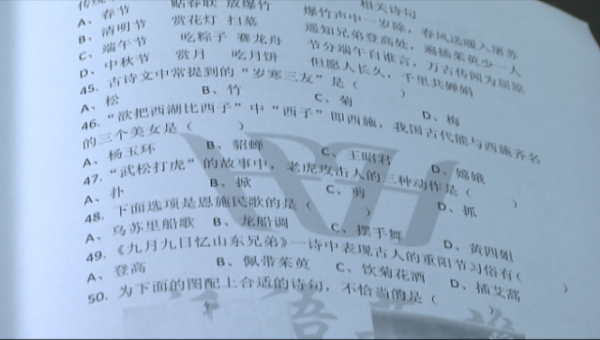 相关诗句
A、春节 贴春联 放爆竹 爆竹声中一岁除,春风送暖入屠苏
B、清明节 赏花灯 扫墓 遥知兄弟登高处,遍插茱萸少一人
C、端午节 吃粽子 赛龙舟 节分端午自谁言,万古传闻为屈原
D、中秋节 赏月 吃月饼 但愿人长久,千里共婵娟
45. 古诗文中常提到的“岁寒三友”是( )
A、松 B、竹 C、菊 D、梅
46. “欲把西湖比西子”中“西子”即西施,我国古代能与西施齐名
的三个美女是( )
A、杨玉环 B、貂蝉 C、王昭君 D、嫦娥
47. “武松打虎”的故事中,老虎攻击人的三种动作是( )
A、扑 B、掀 C、剪 D、抓
48. 下面选项是恩施民歌的是( )
A、乌苏里船歌 B、龙船调 C、摆手舞 D、黄四姐
49. 《九月九日忆山东兄弟》一诗中表现古人的重阳节习俗有( )
A、登高 B、佩带茱萸 C、饮菊花酒 D、插艾蒿
50. 为下面的图配上合适的诗句,不恰当的是(